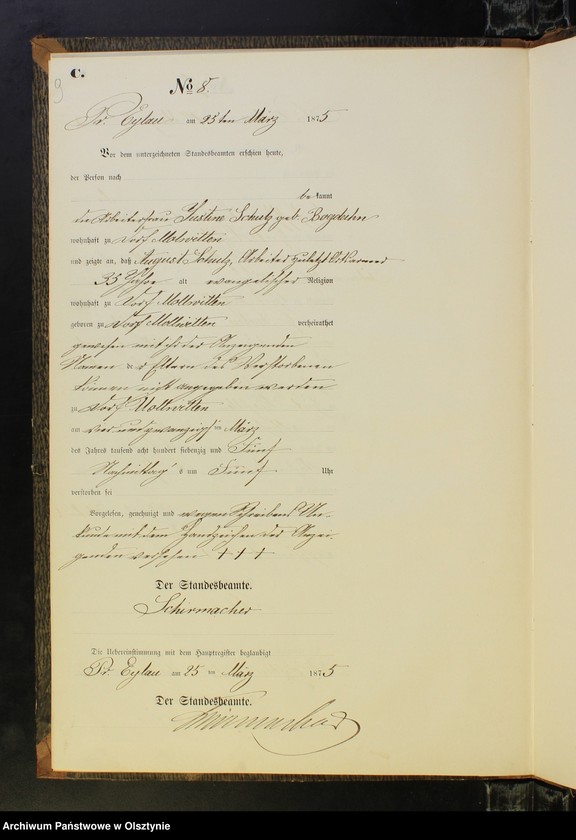 9
C.
No 8.
Pr. Eylau am 25ten März 1875
Vor dem unterzeichneten Standesbeamten erschien heute,
der Person nach
bekannt
die Arbeiterfrau Justine Schulz geb. Bogdahn
wohnhaft zu Dorf Mollwitten
und zeigte an, daß August Schulz, Arbeiter zuletzt
35 Jahre alt evangelischer Religion
wohnhaft zu Dorf Mollwitten
geboren zu Dorf Mollwitten verheirathet
gewesen mit der Anzeigenden
Namen der Eltern des Verstorbenen
können nicht angegeben werden
zu Dorf Mollwitten
am vier und zwanzigsten März
des Jahres tausend acht hundert siebenzig und Fünf
Nachmittags um Fünf Uhr
verstorben sei
Vorgelesen, genehmigt und wegen Schreibens Un-
kunde mit dem Handzeichen der Anzei-
genden versehen +++
Der Standesbeamte.
Schirmacher
Die Uebereinstimmung mit dem Hauptregister beglaubigt
Pr. Eylau am 25 ten März 1875
Der Standesbeamte.
Schirmacher
Archiwum Państwowe w Olsztynie